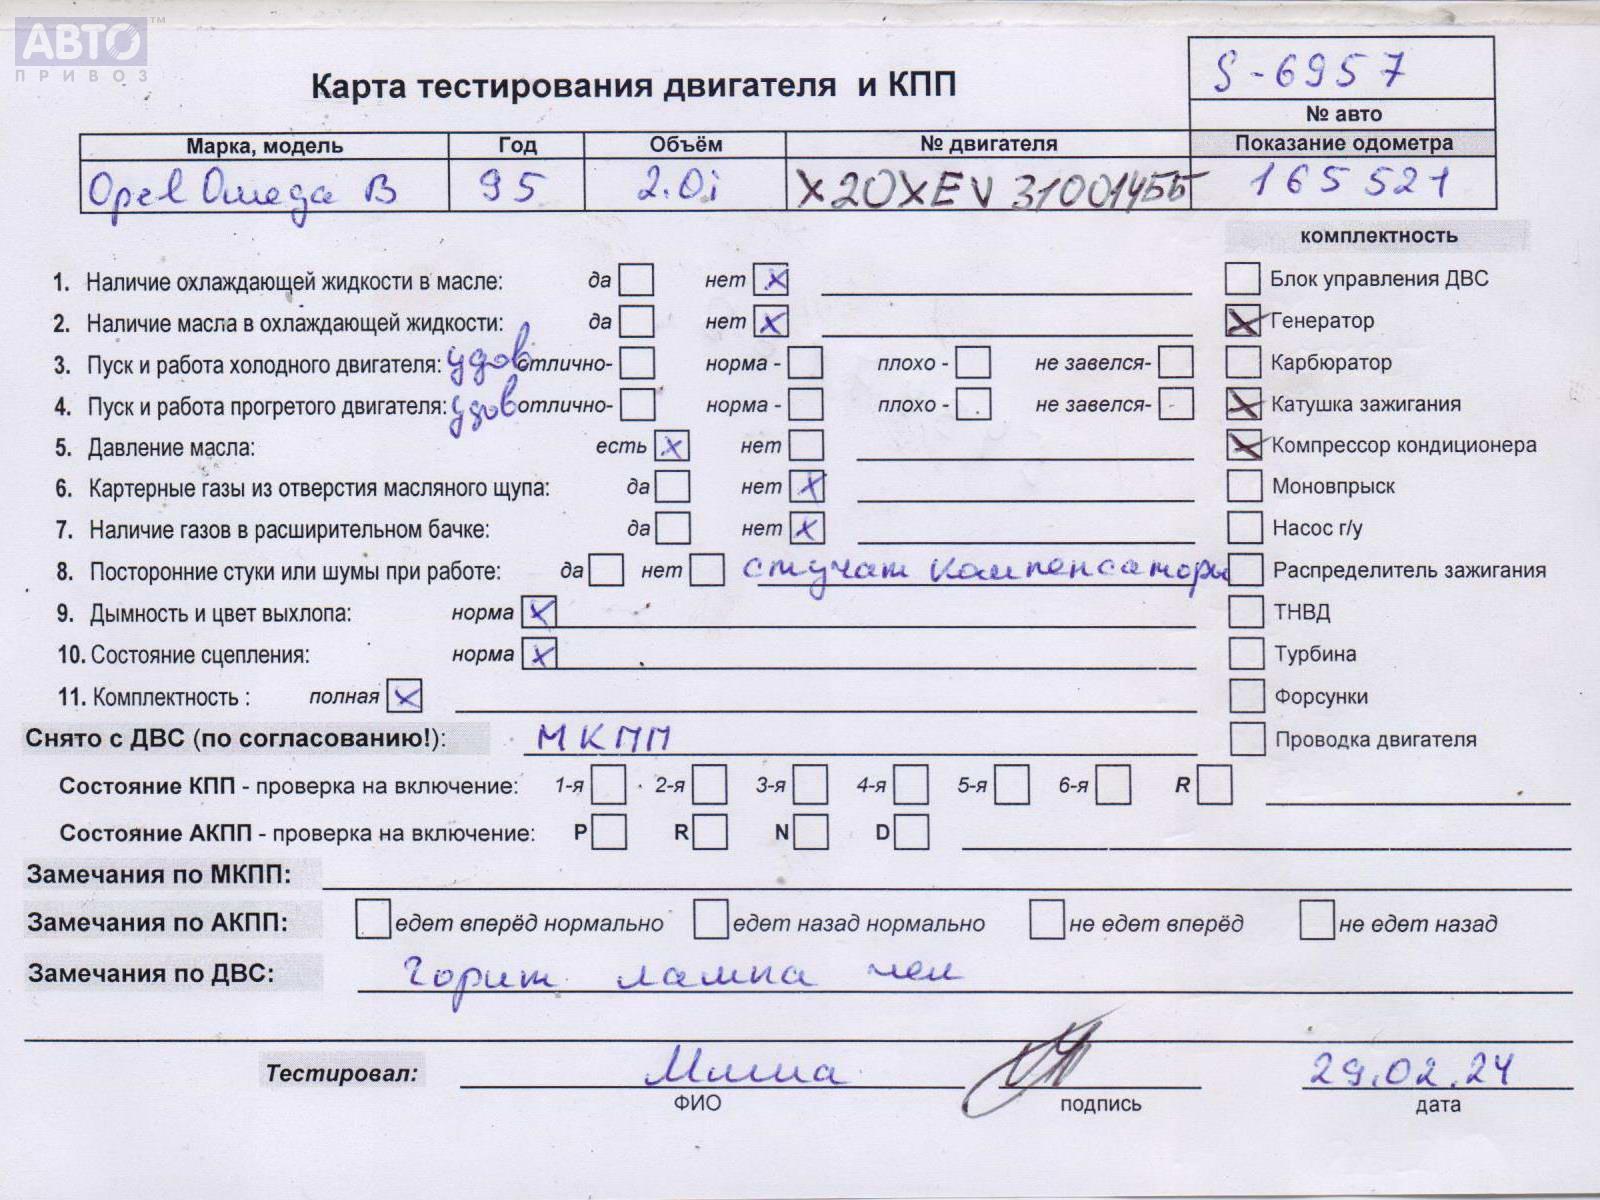 АВТО™
ПРИВОЗ
S-6957
Карта тестирования двигателя и КПП
№ авто
Марка, модель Год Объём № двигателя Показание одометра
Opel Omega B 95 2.0i X20XEV 31001455 165521
комплектность
1. Наличие охлаждающей жидкости в масле: да нет x Блок управления ДВС
2. Наличие масла в охлаждающей жидкости: да нет x x Генератор
3. Пуск и работа холодного двигателя: удов отлично- норма - плохо - не завелся- Карбюратор
4. Пуск и работа прогретого двигателя: удов отлично- норма - плохо - не завелся- x Катушка зажигания
5. Давление масла: есть x нет x Компрессор кондиционера
6. Картерные газы из отверстия масляного щупа: да нет x Моновпрыск
7. Наличие газов в расширительном бачке: да нет x Насос г/у
8. Посторонние стуки или шумы при работе: да нет стучат компенсаторы Распределитель зажигания
9. Дымность и цвет выхлопа: норма x ТНВД
10. Состояние сцепления: норма x Турбина
11. Комплектность : полная x Форсунки
Снято с ДВС (по согласованию!): МКПП Проводка двигателя
Состояние КПП - проверка на включение: 1-я 2-я 3-я 4-я 5-я 6-я R
Состояние АКПП - проверка на включение: P R N D
Замечания по МКПП:
Замечания по АКПП: едет вперёд нормально едет назад нормально не едет вперёд не едет назад
Замечания по ДВС: Горит лампа чек
Тестировал: Миша 29.02.24
ФИО подпись дата